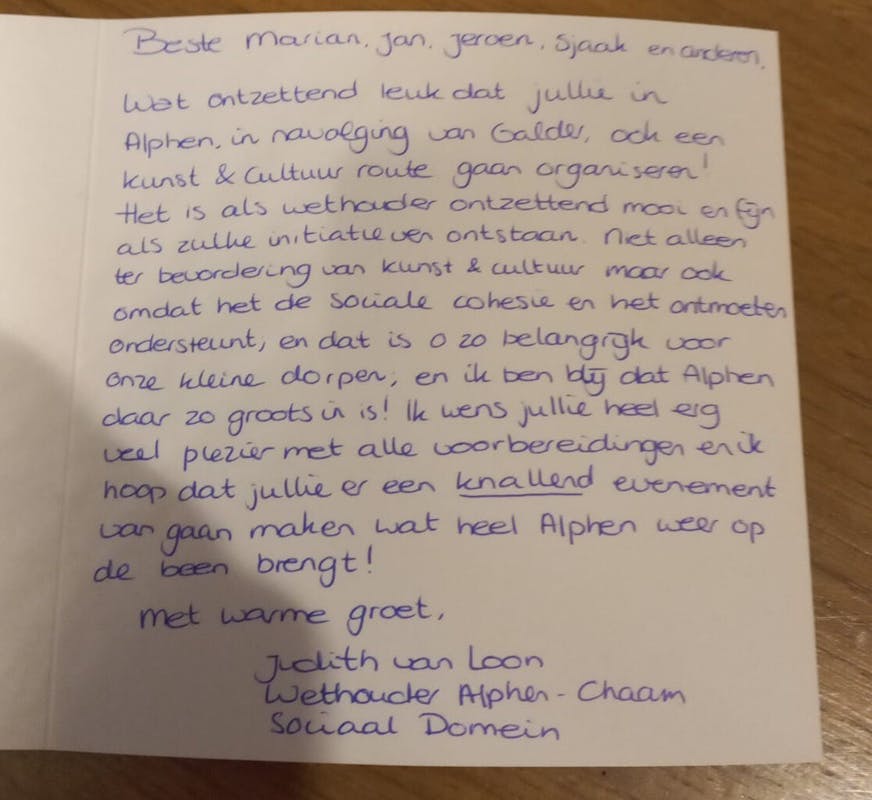 Beste Marian, Jan, Jeroen, Sjaak en anderen,
Wat ontzettend leuk dat jullie in
Alphen, in navolging van Galder, ook een
kunst & cultuur route gaan organiseren!
Het is als wethouder ontzettend mooi en fijn
als zulke initiatieven ontstaan. Niet alleen
ter bevordering van kunst & cultuur maar ook
omdat het de sociale cohesie en het ontmoeten
ondersteunt, en dat is o zo belangrijk voor
onze kleine dorpen, en ik ben blij dat Alphen
daar zo groots in is! Ik wens jullie heel erg
veel plezier met alle voorbereidingen en ik
hoop dat jullie er een knallend evenement
van gaan maken wat heel Alphen weer op
de been brengt!
Met warme groet,
Judith van Loon
Wethouder Alphen-Chaam
Sociaal Domein